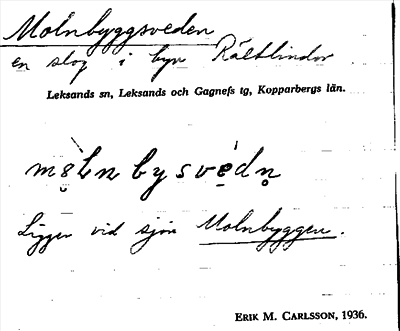 Molnbyggsveden
en slog i byn Rältlindor
Leksands sn, Leksands och Gagnefs tg, Kopparbergs län.
Ligger vid sjön Molnbyggen.
ERIK M. CARLSSON, 1936.